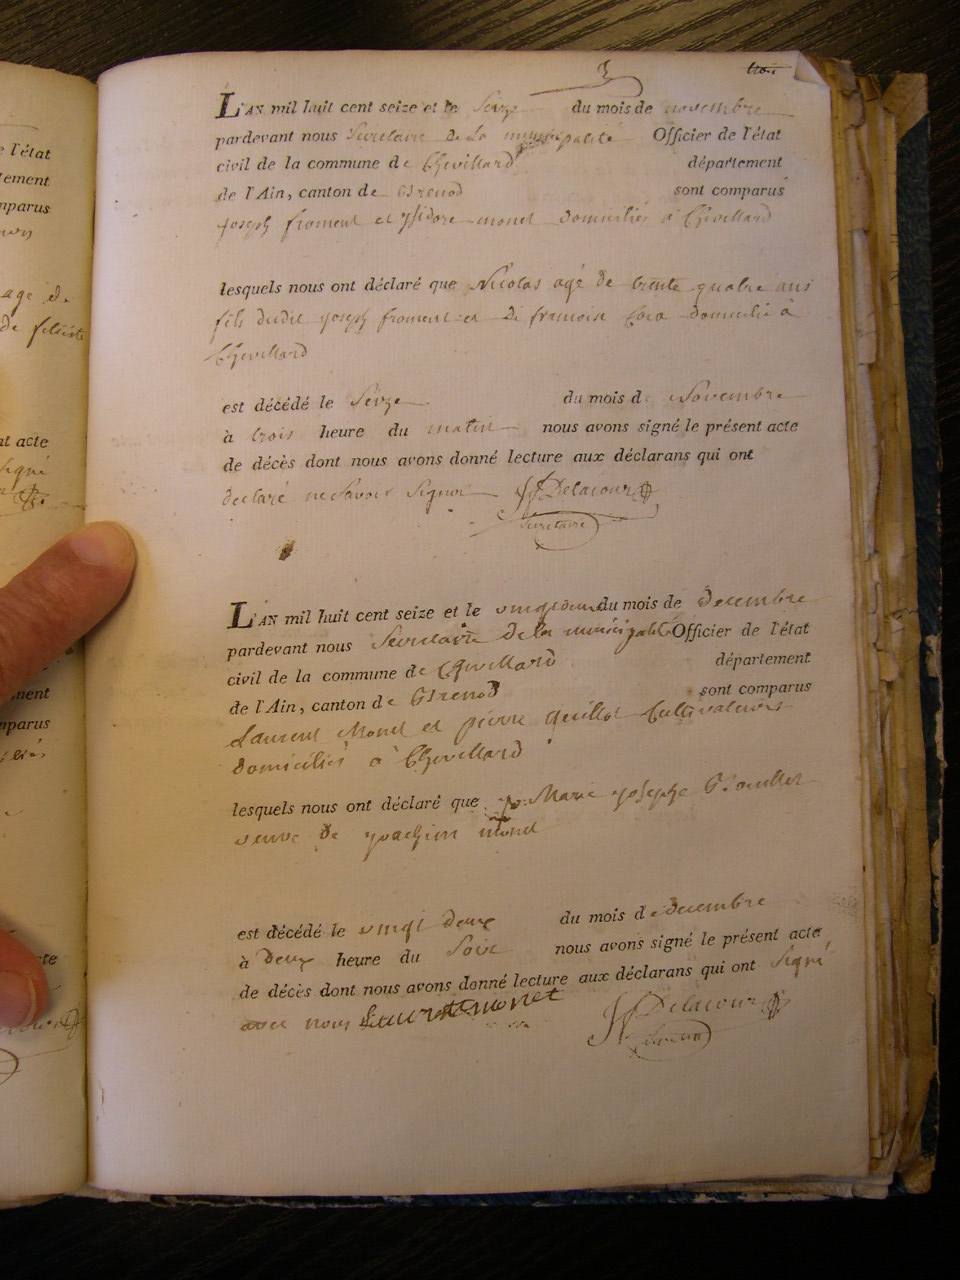 3
trois
L'AN mil huit cent seize et le seize du mois de novembre
pardevant nous Secretaire de La municipalité Officier de l'état
civil de la commune de Chevillard département
de l'Ain, canton de Brenod sont comparus
Joseph froment et ysidore monet domiciliés à Chevillard
lesquels nous ont déclaré que Nicolas agé de trente quatre ans
fils dudit joseph froment et de francoise domicilié à
Chevillard
est décédé le Seize du mois de Novembre
à trois heure du matin nous avons signé le présent acte
de décès dont nous avons donné lecture aux déclarans qui ont
declaré ne Savoir Signer Delacour
Secretaire
L'AN mil huit cent seize et le vingt deux du mois de decembre
pardevant nous Secretaire de la municipalité Officier de l'état
civil de la commune de Chevillard département
de l'Ain, canton de Brenod sont comparus
Laurent Monet et pierre quillot Cultivateurs
domiciliés à Chevillard
lesquels nous ont déclaré que Marie josephe
veuve de joachim monet
est décédé le vingt deux du mois de decembre
à deux heure du Soir nous avons signé le présent acte
de décès dont nous avons donné lecture aux déclarans qui ont Signé
avec nous Laurent monet Delacour
Secretaire